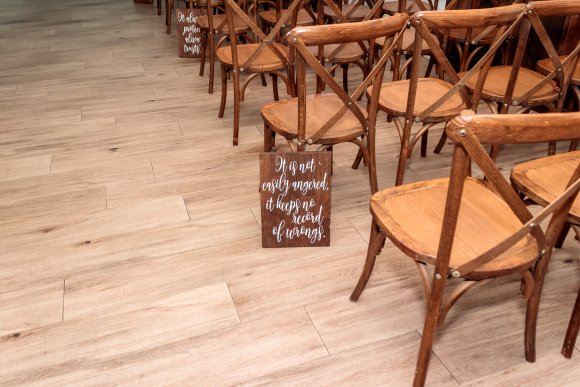 It always
protects
always
trusts
It is not
easily angered,
it keeps no
record
of wrongs.